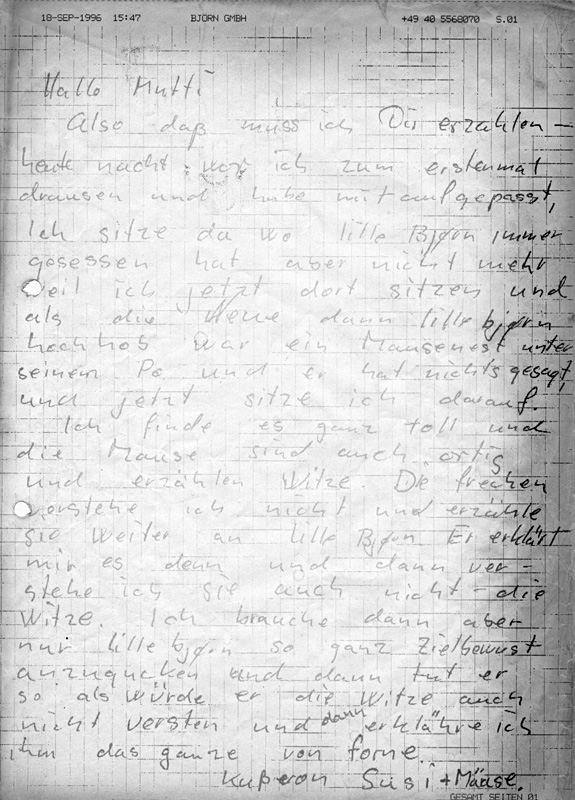 18-SEP-1996 15:47 BJÖRN GMBH +49 40 5568070 S.01
Hallo Mutti
Also daß muss ich Dir erzählen –
heute nacht war ich zum erstenmal
drausen und habe mit aufgepasst,
Ich sitze da wo lille Bjørn immer
gesessen hat aber nicht mehr
weil ich jetzt dort sitzen und
als die Heue dann lille bjørn
hochhob war ein Mausenest unter
seinem Po und er hat nichts gesagt,
und jetzt sitze ich darauf.
Ich finde es ganz toll und
die Mause sind auch ortig
und erzählen Witze. Die frechen
verstehe ich nicht und erzähle
sie weiter an lille Bjørn Er erklärt
mir es denn und dann ver-
stehe ich sie auch nicht – die
Witze. Ich brauche dann aber
nur lille bjørn so ganz Zielbewust
anzugucken und dann tut er
so als würde er die Witze auch
nicht versten und dann erklähre ich
ihm das ganze von forne.
Kußvon Susi + Mäuse.
GESAMT SEITEN 01